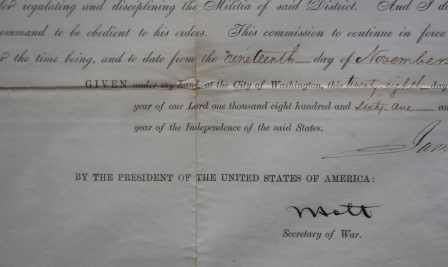 or regulating and disciplining the Militia of said District. And I d
ommand to be obedient to his orders. This commission to continue in force
r the time being, and to date from the nineteenth day of November
GIVEN under my hand, at the City of Washington, this twenty eighth day
year of our Lord one thousand eight hundred and sixty one an
year of the Independence of the said States.
BY THE PRESIDENT OF THE UNITED STATES OF AMERICA:
Secretary of War.